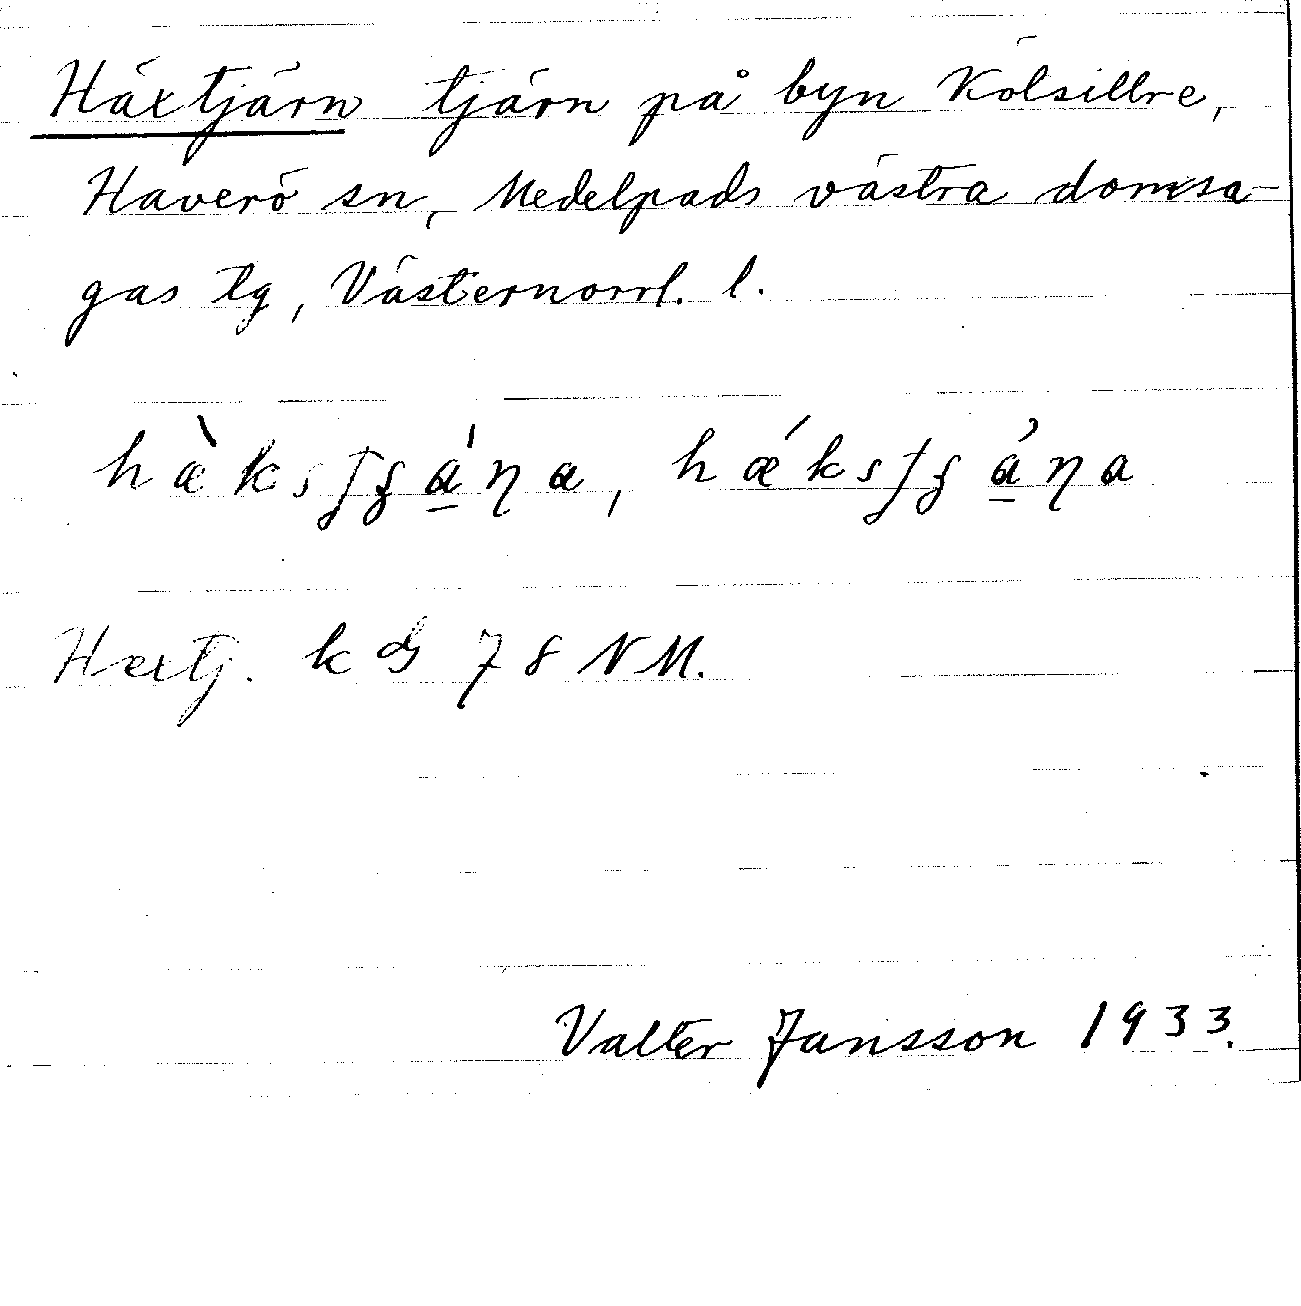 Häxtjärn tjärn på byn Kölsillre,
Haverö sn, Medelpads västra domsa-
gas tg, Västernorrl. l.
hæ̀ksʃʒa̲̍ŋa, hǽksʃʒa̲̓ŋa
Hextj. k 78 NM.
Valter Jansson 1933.